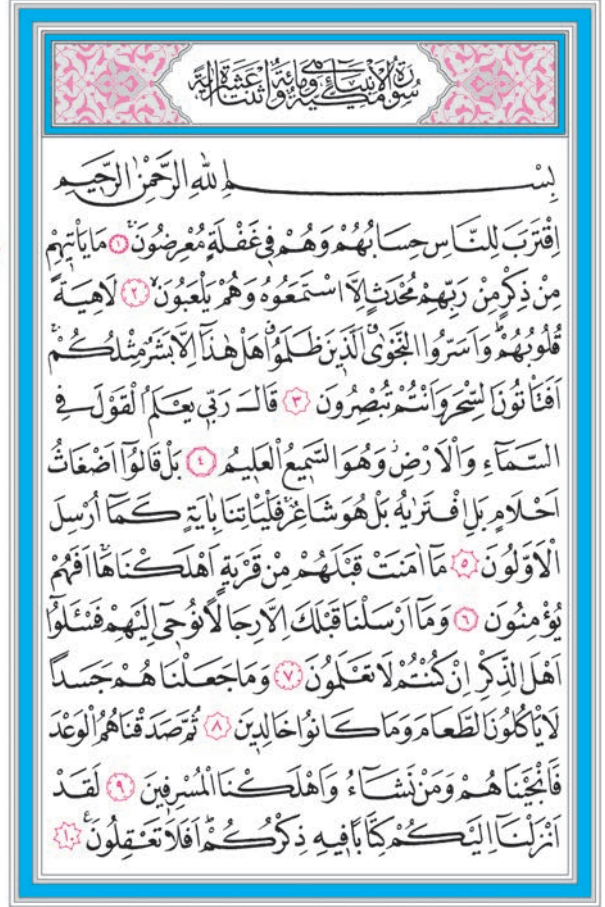 سُورَةُ الْاَنْبِيَاءِ مَكِّيَّةٌ وَهِيَ مِائَةٌ وَاثْنَتَا عَشْرَةَ اٰيَةً
بِسْمِ اللهِ الرَّحْمٰنِ الرَّحِيمِ
اِقْتَرَبَ لِلنَّاسِ حِسَابُهُمْ وَهُمْ فِي غَفْلَةٍ مُعْرِضُونَۚ ١ مَا يَأْتِيهِمْ
مِنْ ذِكْرٍ مِنْ رَبِّهِمْ مُحْدَثٍ اِلَّا اسْتَمَعُوهُ وَهُمْ يَلْعَبُونَۙ ٢ لَاهِيَةً
قُلُوبُهُمْۜ وَاَسَرُّوا النَّجْوٰىۗ اَلَّذِينَ ظَلَمُواۗ هَلْ هٰذَٓا اِلَّا بَشَرٌ مِثْلُكُمْۚ
اَفَتَأْتُونَ السِّحْرَ وَاَنْتُمْ تُبْصِرُونَ ٣ قَالَ رَبِّي يَعْلَمُ الْقَوْلَ فِي
السَّمَٓاءِ وَالْاَرْضِۘ وَهُوَ السَّمِيعُ الْعَلِيمُ ٤ بَلْ قَالُٓوا اَضْغَاثُ
اَحْلَامٍ بَلِ افْتَرٰيهُ بَلْ هُوَ شَاعِرٌۚ فَلْيَأْتِنَا بِاٰيَةٍ كَمَٓا اُرْسِلَ
الْاَوَّلُونَ ٥ مَٓا اٰمَنَتْ قَبْلَهُمْ مِنْ قَرْيَةٍ اَهْلَكْنَاهَاۚ اَفَهُمْ
يُؤْمِنُونَ ٦ وَمَٓا اَرْسَلْنَا قَبْلَكَ اِلَّا رِجَالًا نُوحِٓي اِلَيْهِمْ فَسْـَٔلُٓوا
اَهْلَ الذِّكْرِ اِنْ كُنْتُمْ لَا تَعْلَمُونَ ٧ وَمَا جَعَلْنَاهُمْ جَسَدًا
لَا يَأْكُلُونَ الطَّعَامَ وَمَا كَانُوا خَالِدِينَ ٨ ثُمَّ صَدَقْنَاهُمُ الْوَعْدَ
فَاَنْجَيْنَاهُمْ وَمَنْ نَشَٓاءُ وَاَهْلَكْنَا الْمُسْرِفِينَ ٩ لَقَدْ
اَنْزَلْنَٓا اِلَيْكُمْ كِتَابًا فِيهِ ذِكْرُكُمْۜ اَفَلَا تَعْقِلُونَ۟ ١٠